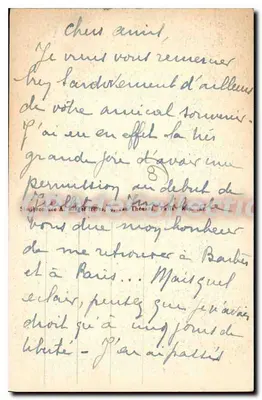 Chers amis,
Je viens vous remercier
très tardivement d'ailleurs
de votre amical souvenir.
J'ai eu en effet la très
grande joie d'avoir une
permission au début de
vous dire mon bonheur
de me retrouver à Barbès
et à Paris... Mais quel
éclair, pensez que je n'avais
droit qu'à cinq jours de
liberté - J'en ai passés